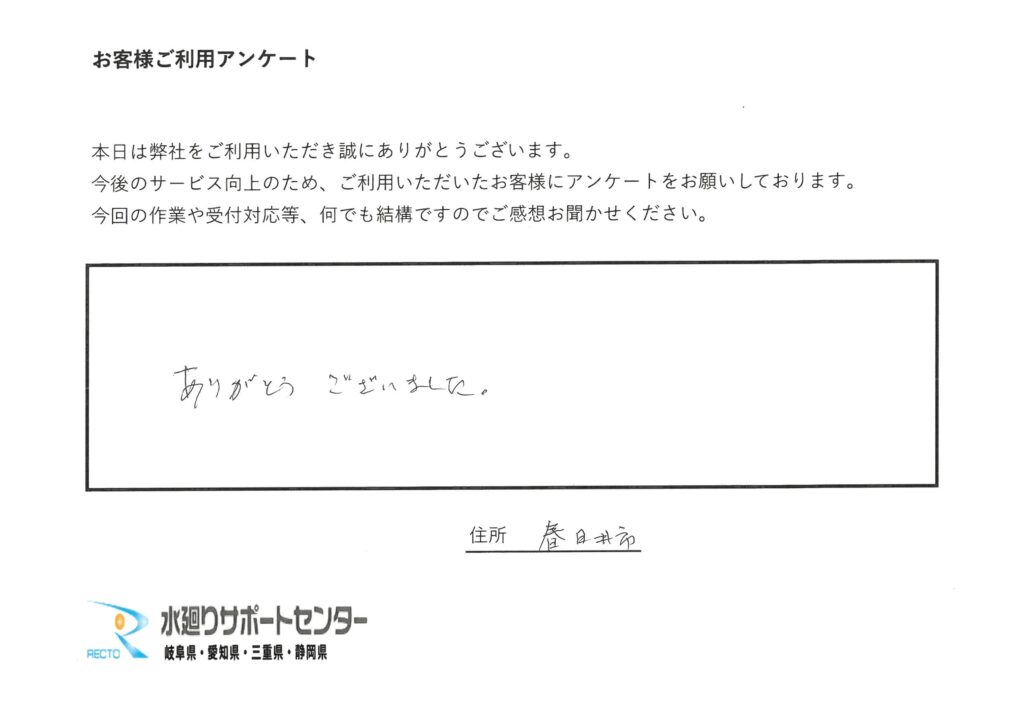 お客様ご利用アンケート
本日は弊社をご利用いただき誠にありがとうございます。
今後のサービス向上のため、ご利用いただいたお客様にアンケートをお願いしております。
今回の作業や受付対応等、何でも結構ですのでご感想お聞かせください。
ありがとう ございました。
住所 春日井市
RECTO
水廻りサポートセンター
岐阜県・愛知県・三重県・静岡県